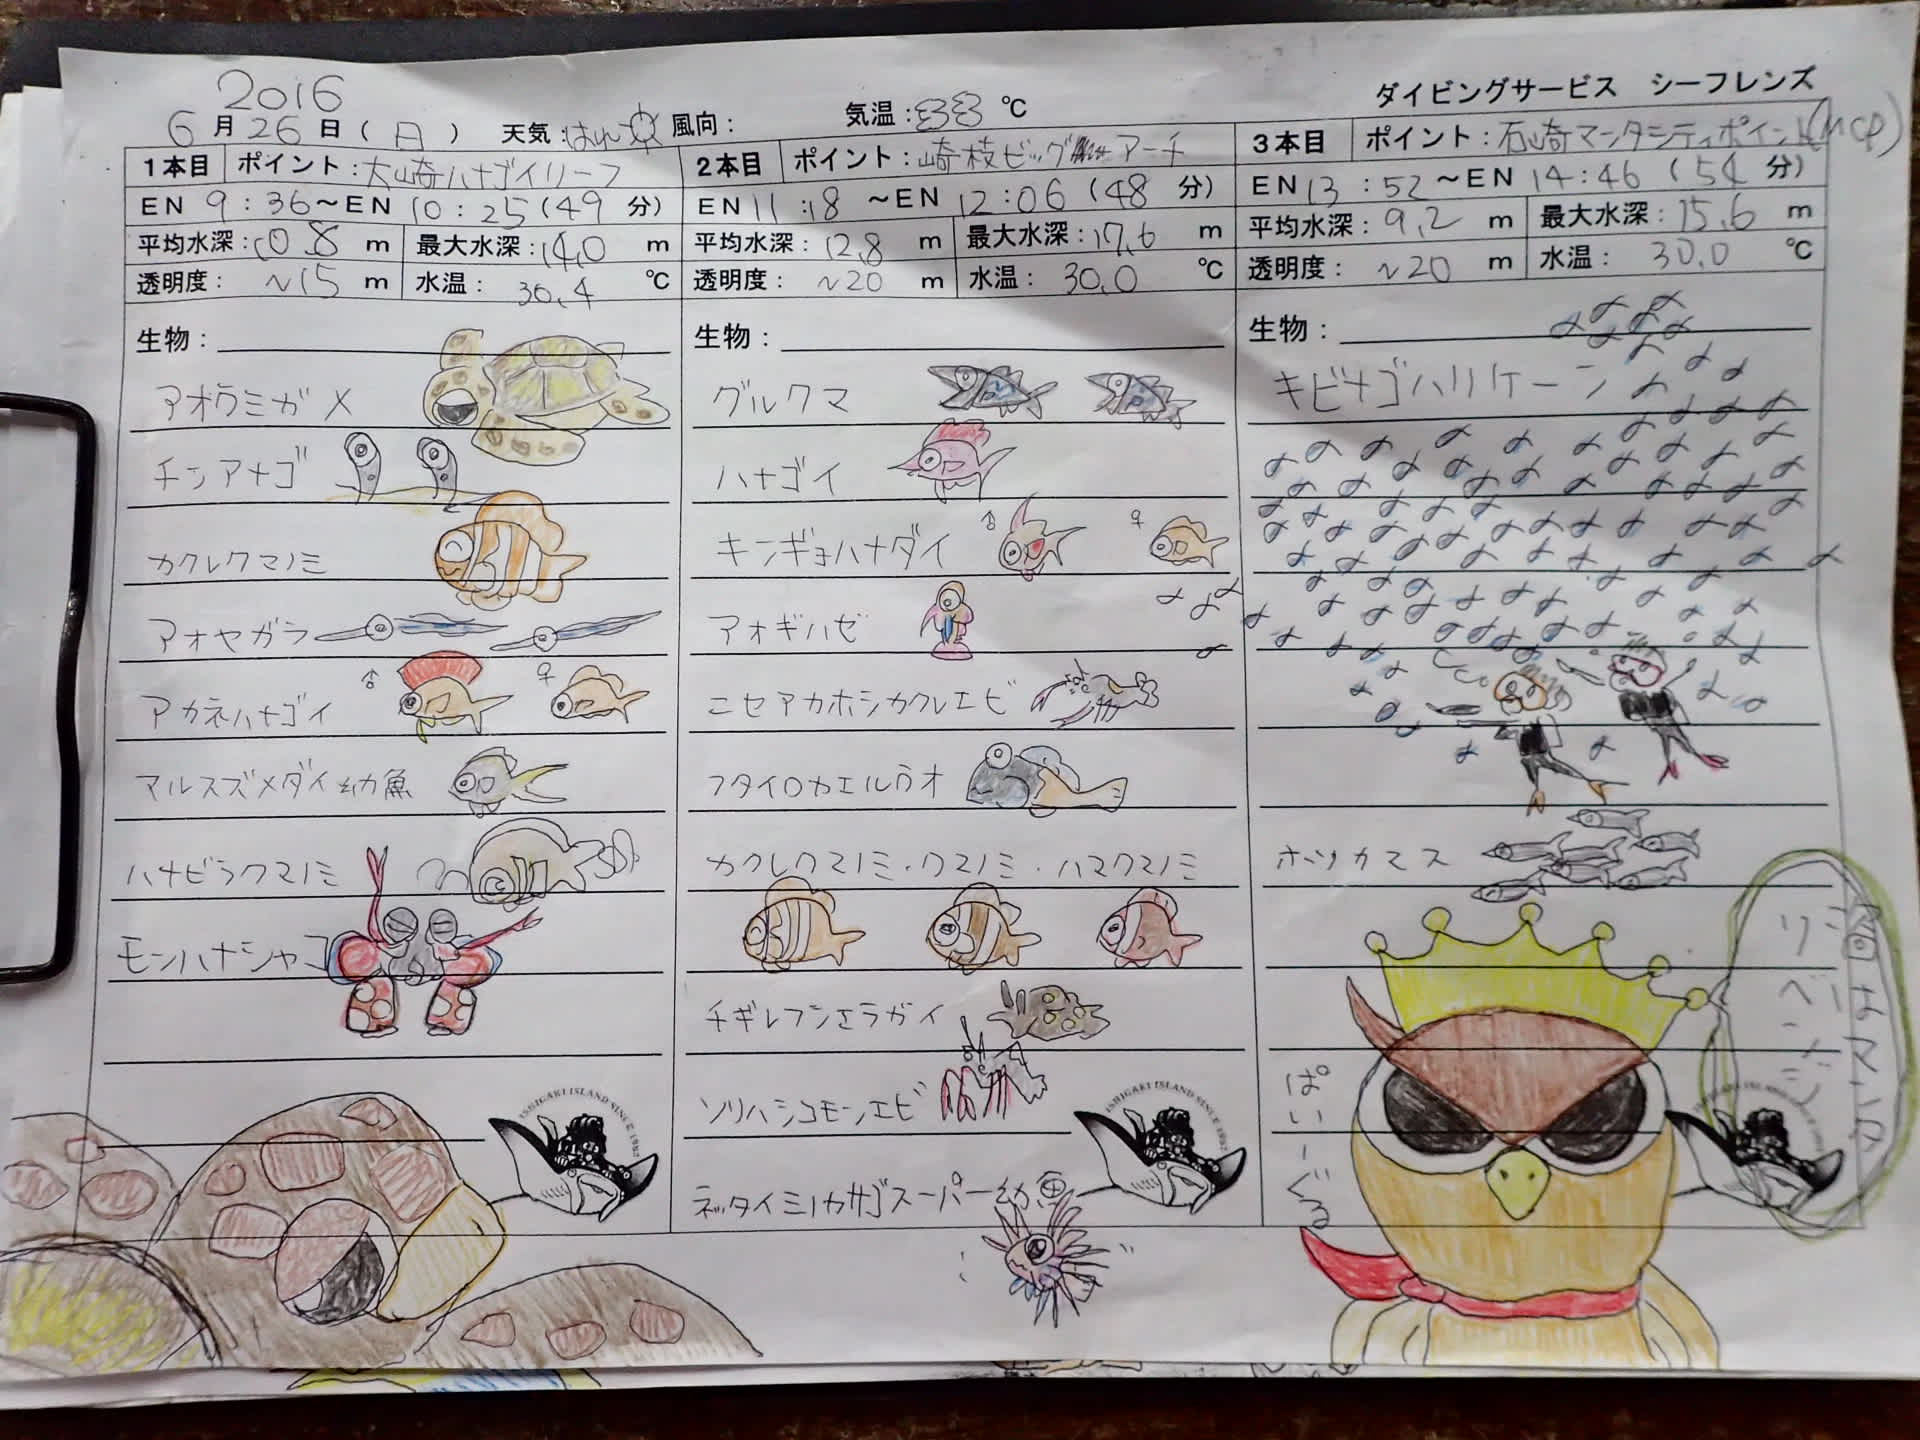 2016
6月26日(日) 天気:はれ 風向: 気温:33℃
ダイビングサービス シーフレンズ
1本目 ポイント:大崎ハナゴイリーフ
EN 9:36~EN 10:25(49分)
平均水深:10.8m 最大水深:14.0m
透明度:~15m 水温:30.4℃
生物:
アオウミガメ
チンアナゴ
カクレクマノミ
アオヤガラ
アカネハナゴイ
♂ ♀
マルスズメダイ幼魚
ハナビラクマノミ
モンハナシャコ
ISHIGAKI ISLAND SINCE 1982
2本目 ポイント:崎枝ビッグアーチ
EN 11:18~EN 12:06(48分)
平均水深:12.8m 最大水深:17.6m
透明度:~20m 水温:30.0℃
生物:
グルクマ
ハナゴイ
キンギョハナダイ
♂ ♀
アオギハゼ
ニセアカホシカクレエビ
フタイロカエルウオ
カクレクマノミ・クマノミ・ハマクマノミ
チギレフシエラガイ
ソリハシコモンエビ
ネッタイミノカサゴスーパー幼魚
ISHIGAKI ISLAND SINCE 1982
3本目 ポイント:石崎マンタシティポイント(MCP)
EN 13:52~EN 14:46(54分)
平均水深:9.2m 最大水深:15.6m
透明度:~20m 水温:30.0℃
生物:
キビナゴハリケーン
ホソカマス
ぱいーぐる
リベンジ
ISHIGAKI ISLAND SINCE 1982